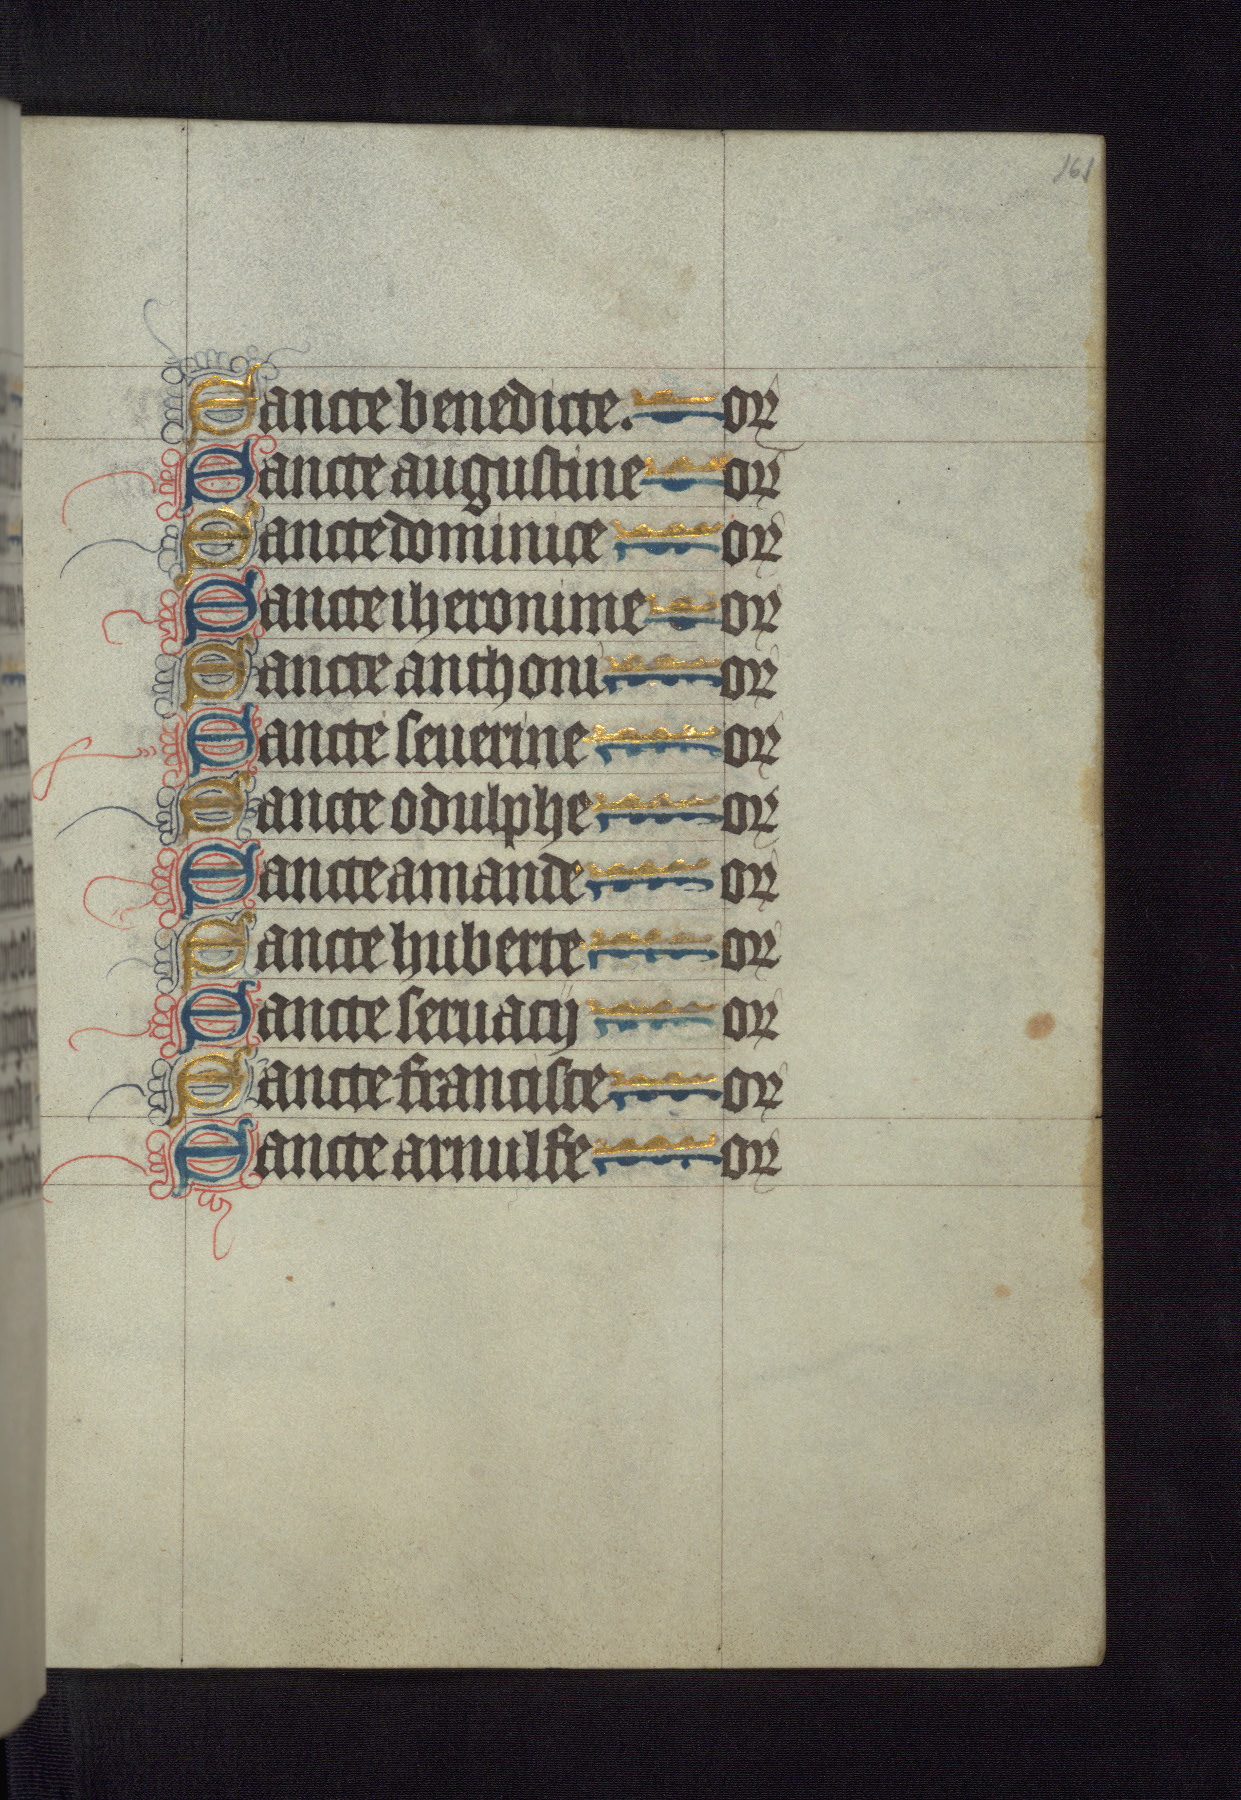 161
Sancte benedicte. or
Sancte augustine or
Sancte dominice or
Sancte iheronime or
Sancte anthoni or
Sancte seuerine or
Sancte odulphe or
Sancte amande or
Sancte huberte or
Sancte seruacij or
Sancte francisce or
Sancte arnulfe or